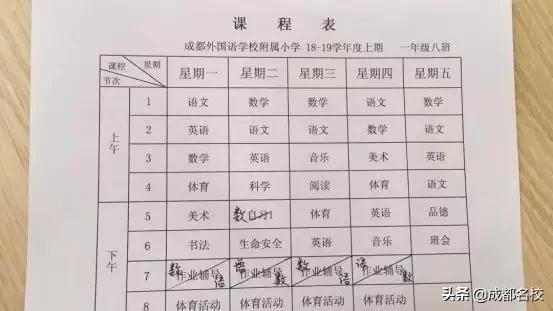 课 程 表
成都外国语学校附属小学 18-19学年度上期 一年级八班
课程 星期 节次 星期一 星期二 星期三 星期四 星期五
上午
1 语文 数学 数学 语文 数学
2 英语 语文 语文 数学 语文
3 数学 英语 音乐 美术 英语
4 体育 科学 阅读 体育 语文
下午
5 美术 数 自习1 体育 英语 品德
6 书法 生命安全 英语 音乐 班会
7 数 作业辅导 语 语 作业辅导 数 数 作业辅导 语 语 作业辅导 数
8 体育活动 体育活动 体育活动 体育活动
头条 @成都名校